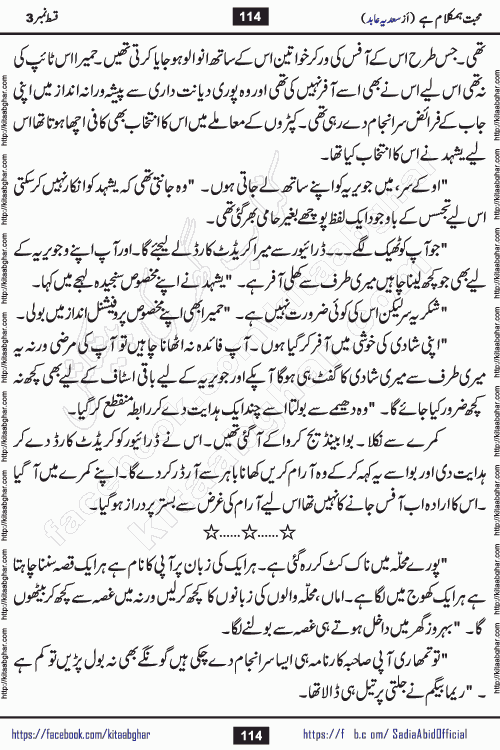 محبت ہمکلام ہے (از سعدیہ عابد)
114
قسط نمبر 3
تھی۔ جس طرح اس کے آفس کی ورکر خواتین اس کے ساتھ انوالو ہو جایا کرتی تھیں۔ حمیرا اس ٹائپ کی
نہ تھی اس لیے اس نے بھی اسے آفر نہیں کی تھی اور وہ پوری دیانت داری سے پیشہ ورانہ انداز میں اپنی
جاب کے فرائض سرانجام دے رہی تھی۔ کپڑوں کے معاملے میں اس کا انتخاب بھی کافی اچھا ہوتا تھا اس
لیے یشہد نے اس کا انتخاب کیا تھا۔
"اوکے سر، میں جویریہ کو اپنے ساتھ لے جاتی ہوں۔ "وہ جانتی تھی کہ یشہد کو انکار نہیں کر سکتی
اس لیے تجسس کے باوجود ایک لفظ پوچھے بغیر حامی بھر گئی تھی۔
"جو آپ کو ٹھیک لگے۔۔۔ ڈرائیور سے میرا کریڈٹ کارڈ لے لیجئے گا۔ اور آپ اپنے و جویریہ کے
لیے بھی جو کچھ لینا چاہیں میری طرف سے کھلی آفر ہے۔ "یشہد نے اپنے مخصوص سنجیدہ لہجے میں کہا۔
"شکریہ سر لیکن اس کی کوئی ضرورت نہیں ہے۔ "حمیرا بھی اپنے مخصوص پروفیشنل انداز میں بولی۔
"اپنی شادی کی خوشی میں آفر کر گیا ہوں۔ آپ فائدہ نہ اٹھانا چاہیں تو آپ کی مرضی ورنہ یہ
میری طرف سے میری شادی کا گفٹ ہی ہوگا آپکے اور جویریہ کے لیے باقی اسٹاف کے لیے بھی کچھ نہ
کچھ ضرور کیا جائے گا۔ "وہ دھیمے سے بولتا اسے چند ایک ہدایت دے کر رابطہ منقطع کر گیا۔
کمرے سے نکلا۔ بوا بینڈیج کروا کے آ گئی تھیں۔ اس نے ڈرائیور کو کریڈٹ کارڈ دے کر
ہدایت دی اور بوا سے یہ کہہ کر کہ وہ آرام کریں کھانا باہر سے آرڈر کر دے گا۔ اپنے کمرے میں آ گیا
۔ اس کا ارادہ اب آفس جانے کا نہیں تھا اس لیے آرام کی غرض سے بستر پر دراز ہو گیا۔
☆......☆......☆
"پورے محلّہ میں ناک کٹ کر رہ گئی ہے۔ ہر ایک کی زبان پر آپی کا نام ہے ہر ایک قصہ سننا چاہتا
ہے ہر ایک کھوج میں لگا ہے۔ اماں، محلّہ والوں کی زبانوں کا کچھ کر لیں ورنہ میں غصہ سے کچھ کر بیٹھوں
گا۔ "بہروز گھر میں داخل ہوتے ہی غصہ سے بولنے لگا۔
"تو تمھاری آپی صاحبہ کارنامہ ہی ایسا سرانجام دے چکی ہیں گونگے بھی نہ بول پڑیں تو کم ہے
۔ "ریما بیگم نے جلتی پر تیل ہی ڈالا تھا۔
https://facebook.com/kitaabghar
114
https://f b.c om/ SadiaAbidOfficial
http://kitaabghar.com http://kitaabghar.com http://kitaabghar.com http://kitaabghar.com http://kitaabghar.com http://kitaabghar.com http://kitaabghar.com http://kitaabghar.com